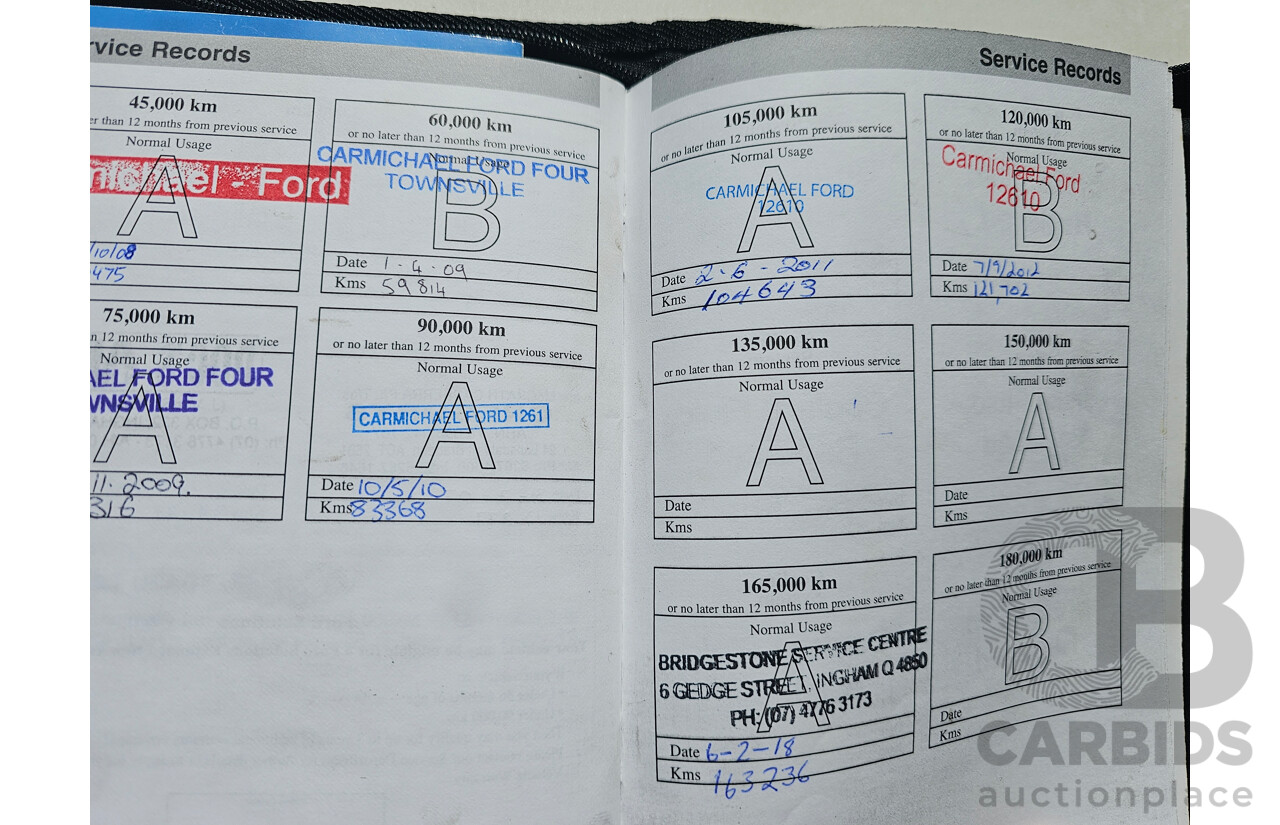 Service Records
45,000 km
12 months from previous service
Normal Usage
Ford
A
/10/08
475
60,000 km
or no later than 12 months from previous service
Normal Usage
CARMICHAEL FORD FOUR
TOWNSVILLE
B
Date 1-4-09
Kms 59814
75,000 km
12 months from previous service
Normal Usage
FORD FOUR
A
11.2009.
316
90,000 km
or no later than 12 months from previous service
Normal Usage
CARMICHAEL FORD 1261
A
Date 10/5/10
Kms 83368
Service Records
105,000 km
or no later than 12 months from previous service
Normal Usage
CARMICHAEL FORD
12610
A
Date 2-6-2011
Kms 104643
120,000 km
or no later than 12 months from previous service
Normal Usage
Carmichael Ford
12610
B
Date 7/9/2012
Kms 121,702
135,000 km
or no later than 12 months from previous service
Normal Usage
A
Date
Kms
150,000 km
or no later than 12 months from previous service
Normal Usage
A
Date
Kms
165,000 km
or no later than 12 months from previous service
Normal Usage
BRIDGESTONE SERVICE CENTRE
6 GEDGE STREET, INGHAM Q 4850
PH: (07) 4776 3173
A
Date 6-2-18
Kms 163236
180,000 km
or no later than 12 months from previous service
Normal Usage
B
Date
Kms
CARBIDS
auctionplace